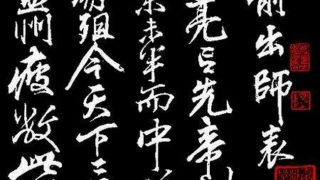 前出師表
亮言先帝創
業未半而中
崩殂今天下三
益州疲敝此